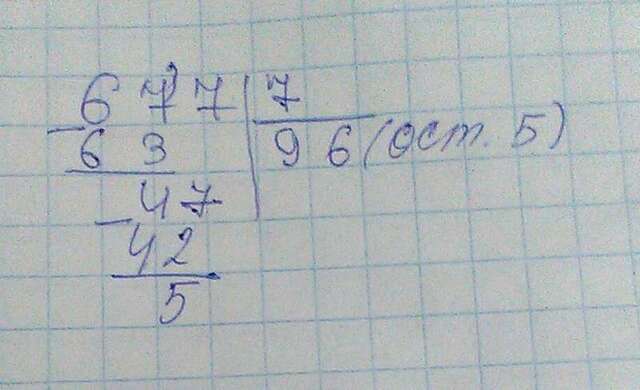 677 7
- 63 96 (ост. 5)
- 47
42
5